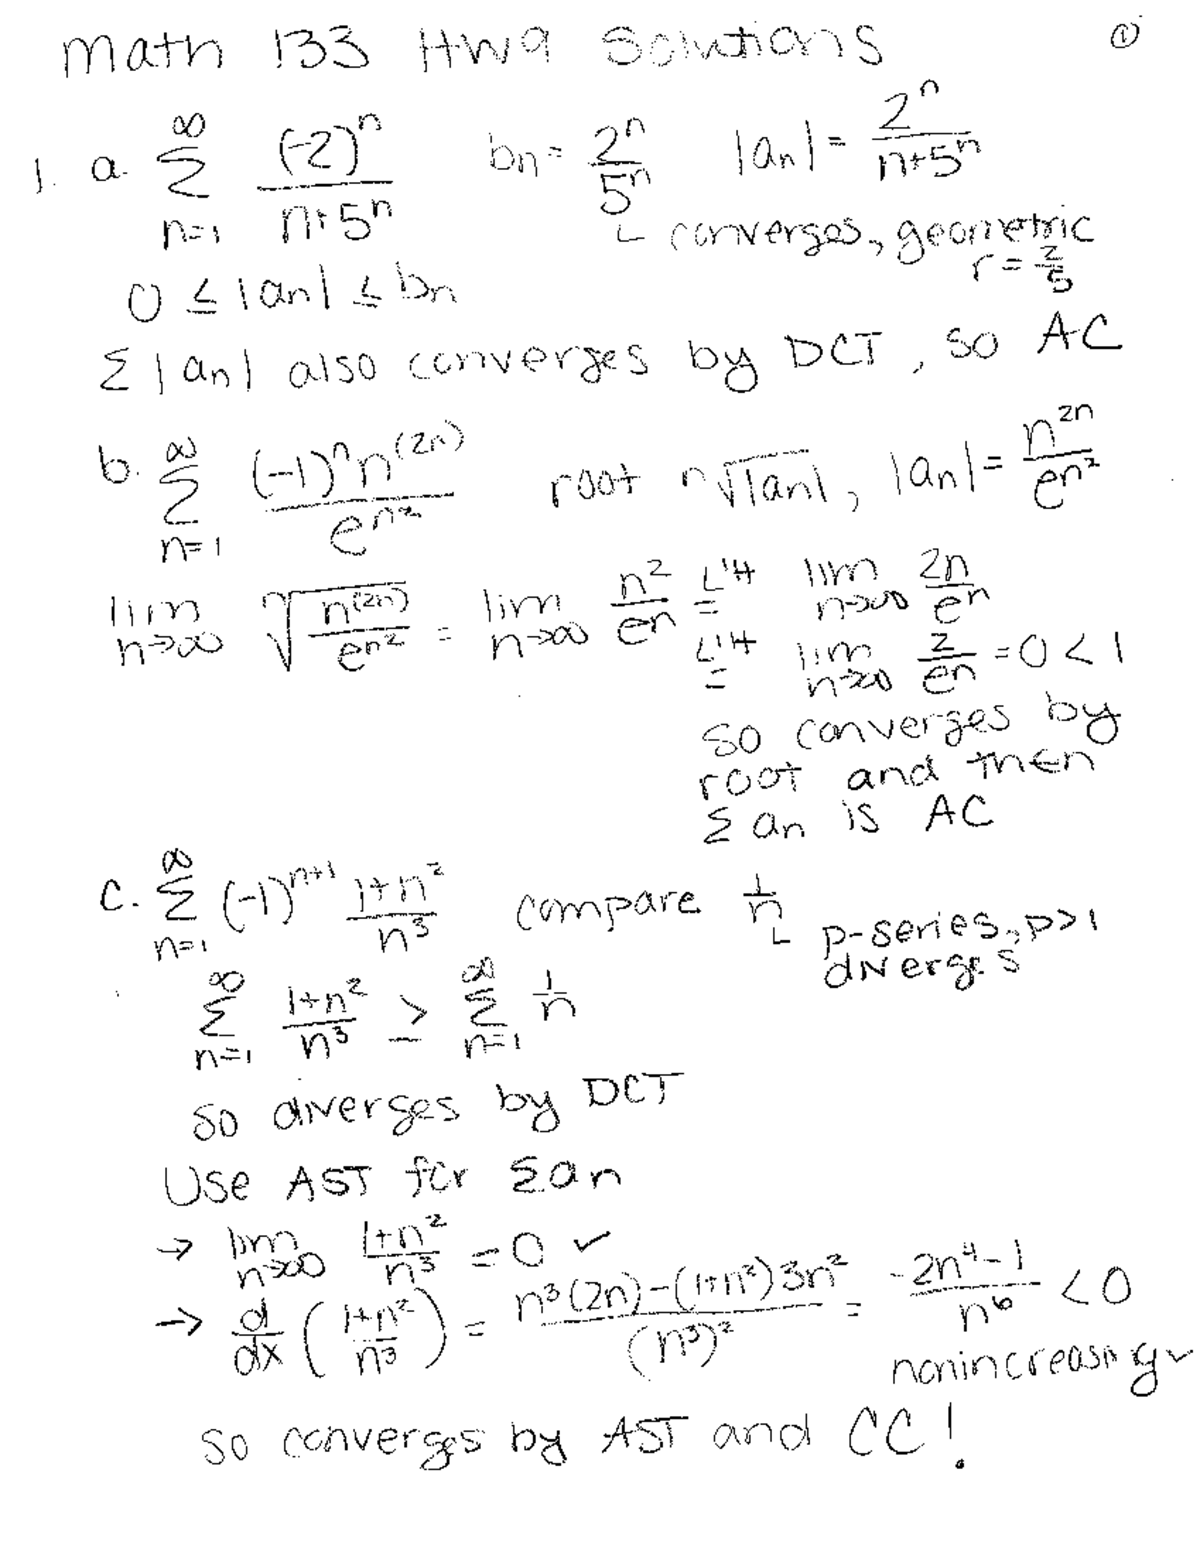 Math 133 HW9 Solutions ①
1. a. ∞∑n=1 (-2)ⁿ/(n+5ⁿ) bn = 2ⁿ/5ⁿ |an| = 2ⁿ/(n+5ⁿ)
↳ converges, geometric r = 2/5
0 ≤ |an| ≤ bn
Σ |an| also converges by DCT, so AC
b. ∞∑n=1 (-1)ⁿn^(2n)/e^n² root ⁿ√|an|, |an| = n^2n/e^n²
lim n→∞ ⁿ√(n^(2n)/e^n²) = lim n→∞ n²/eⁿ L'H = lim n→∞ 2n/eⁿ
L'H = lim n→∞ 2/eⁿ = 0 < 1
so converges by
root and then
Σ an is AC
c. ∞∑n=1 (-1)^n+1 (1+n²)/n³ compare 1/n
↳ p-series, p>1
diverges
∞∑n=1 (1+n²)/n³ ≥ ∞∑n=1 1/n
so diverges by DCT
Use AST for Σan
→ lim n→∞ (1+n²)/n³ = 0 ✓
→ d/dx ((1+n²)/n³) = (n³(2n)-(1+n²)3n²)/(n³)² = (-2n⁴-1)/n⁶ < 0
nonincreasing ✓
so converges by AST and CC!